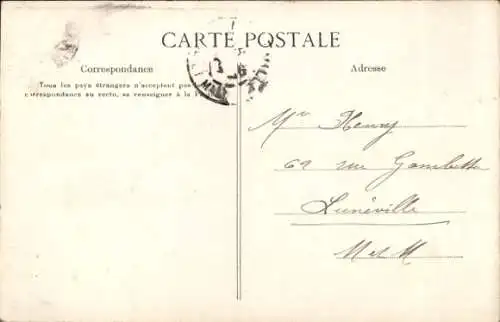 CARTE POSTALE
Correspondance
Tous les pays étrangers n'acceptent pas
correspondance au recto, se renseigner à la
Adresse
Mr Henry
62 rue Gambetta
Lunéville
M et M